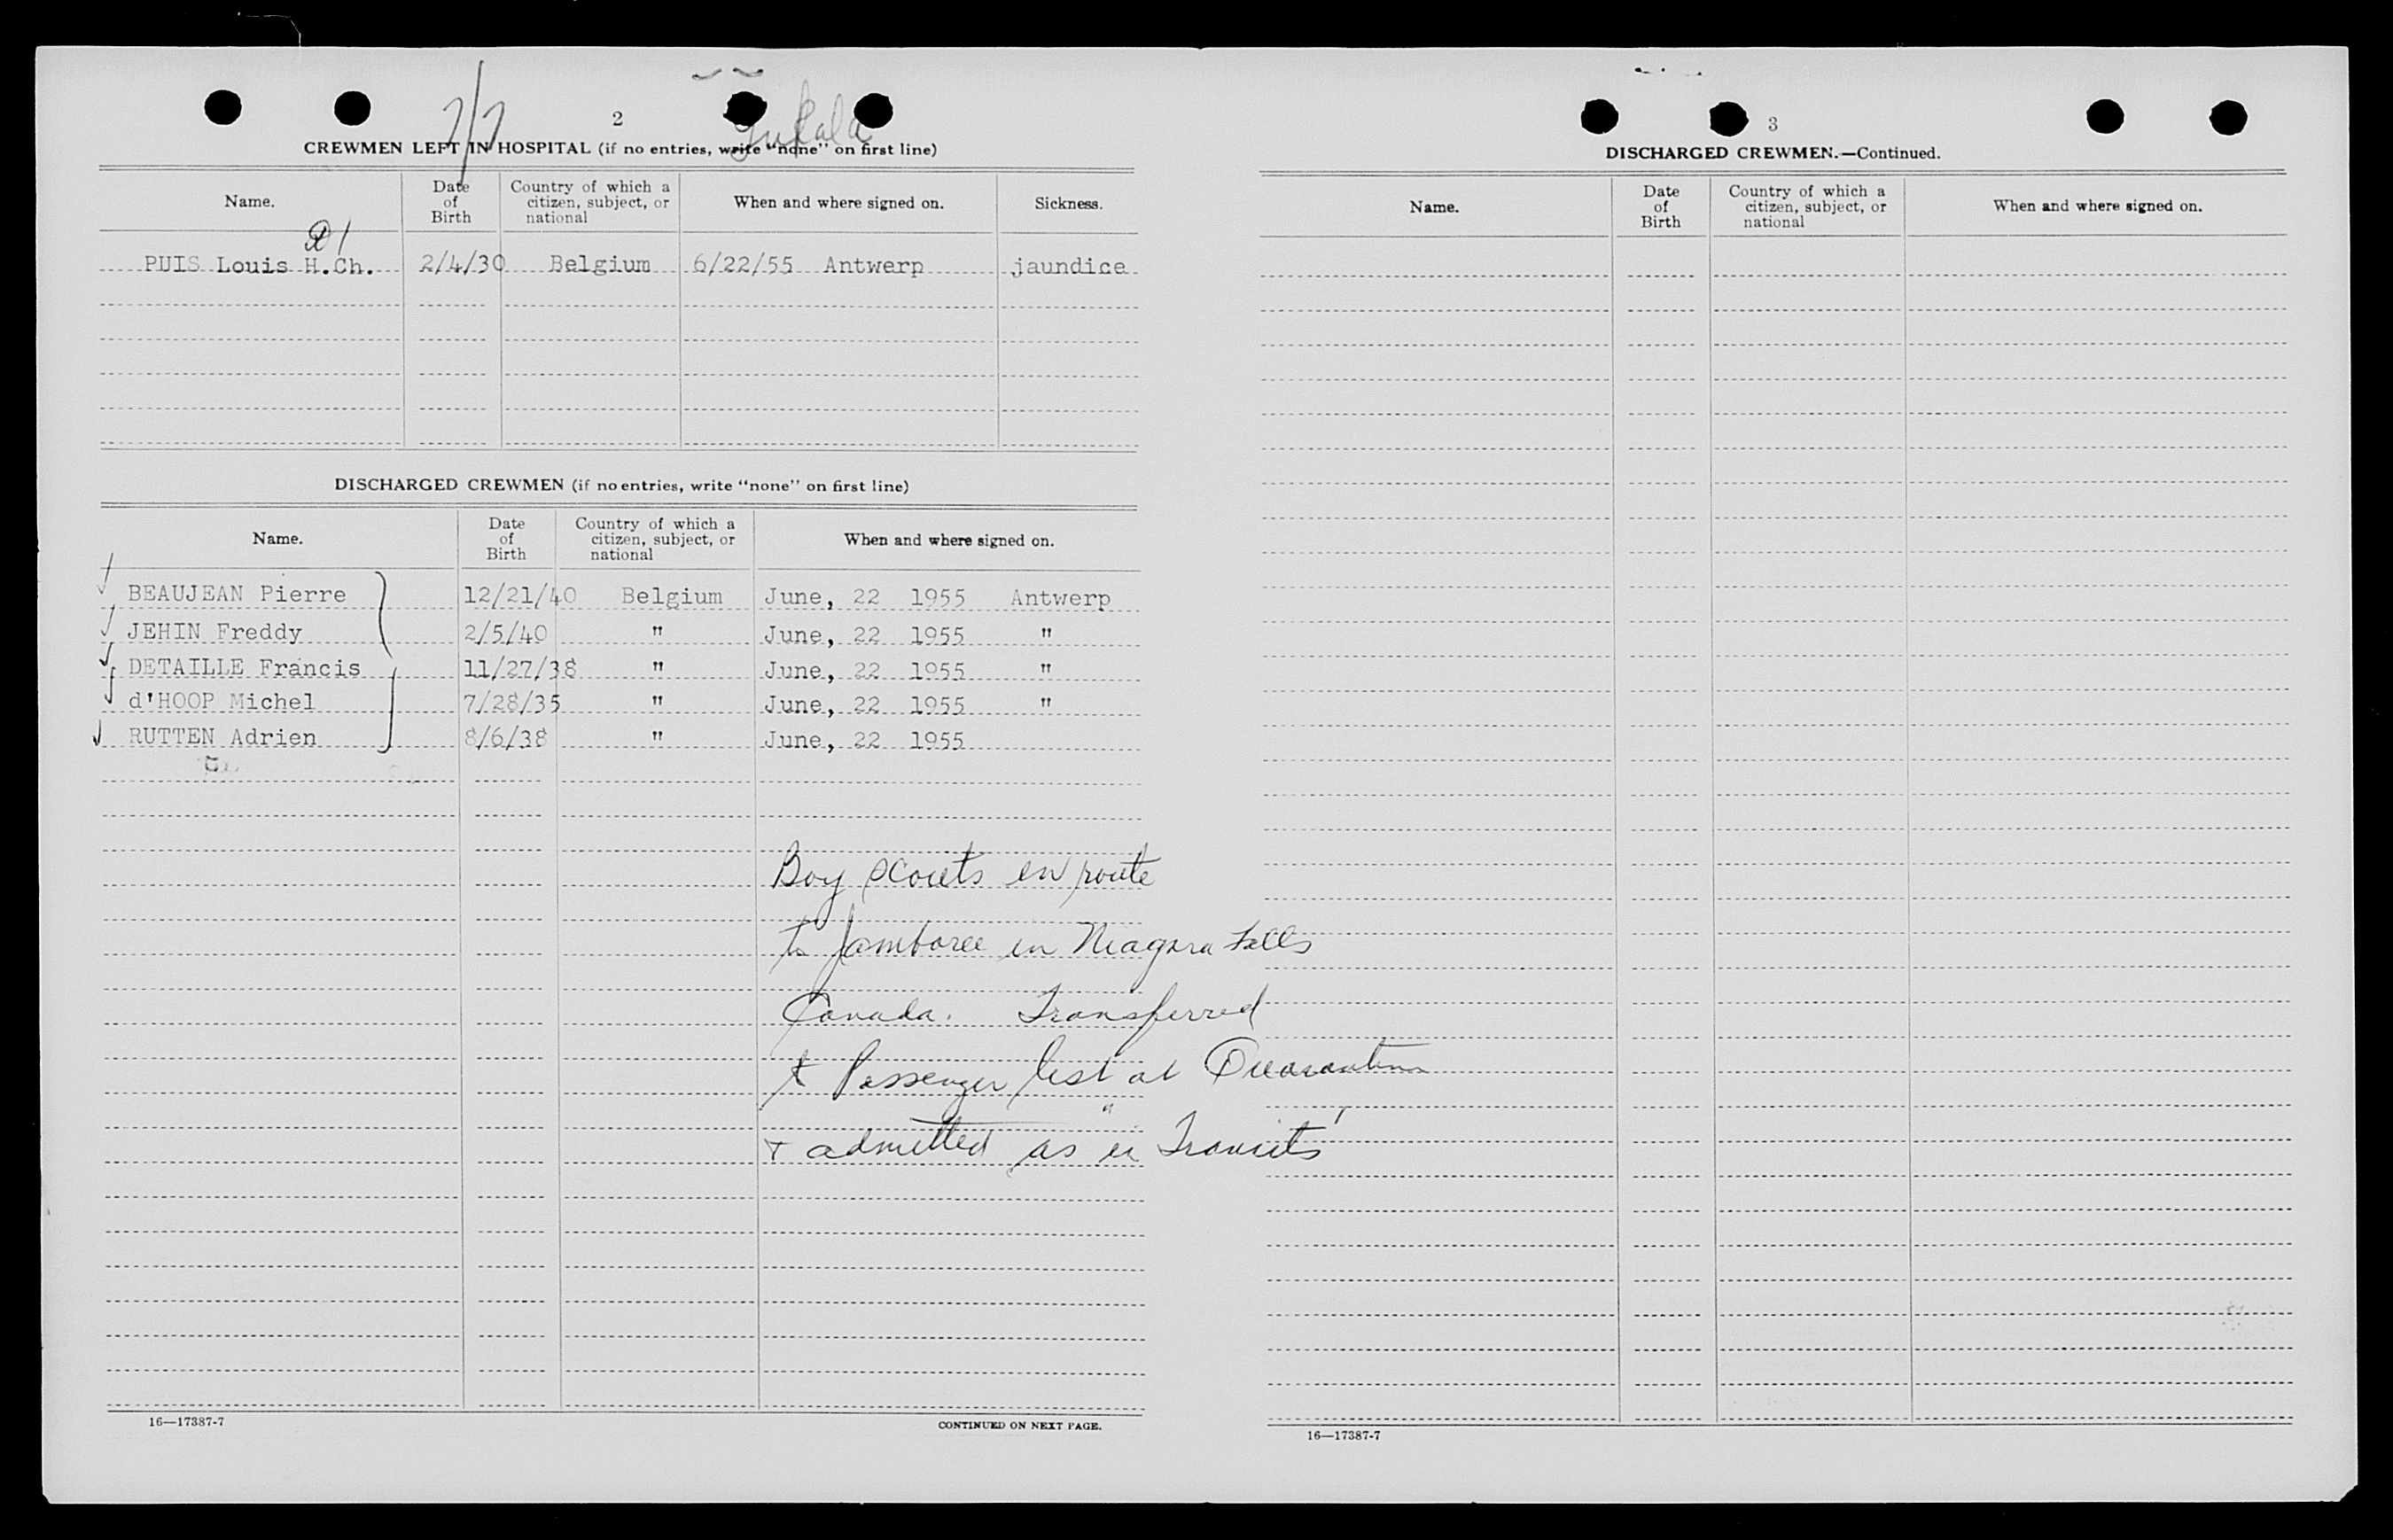 7/7
2
CREWMEN LEFT IN HOSPITAL (if no entries, write "none" on first line)
Name.
Date of Birth
Country of which a citizen, subject, or national
When and where signed on.
Sickness.
PUIS Louis H.Ch. 2/4/30 Belgium 6/22/55 Antwerp jaundice
DISCHARGED CREWMEN (if no entries, write "none" on first line)
Name.
Date of Birth
Country of which a citizen, subject, or national
When and where signed on.
BEAUJEAN Pierre 12/21/40 Belgium June, 22 1955 Antwerp
JEHIN Freddy 2/5/40 " June, 22 1955 "
DETAILLE Francis 11/27/38 " June, 22 1955 "
d'HOOP Michel 7/28/35 " June, 22 1955 "
RUTTEN Adrien 8/6/38 " June, 22 1955
Boy scouts en route
to Jamboree in Niagara Falls
Canada. Transferred
to Passenger list at Quarantine
+ admitted as "in Transits"
16—17387-7
CONTINUED ON NEXT PAGE.
3
DISCHARGED CREWMEN.—Continued.
Name.
Date of Birth
Country of which a citizen, subject, or national
When and where signed on.
16—17387-7